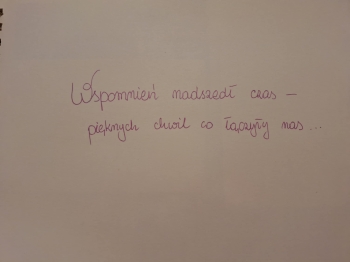 Wspomnień nadszedł czas –
pięknych chwil co łączyły nas...